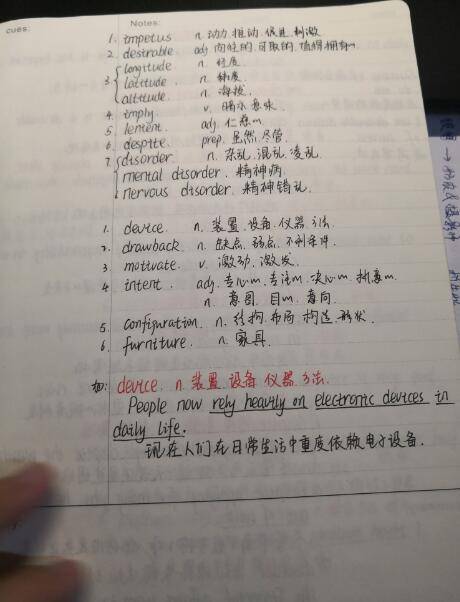 cues:
Notes:
1. impetus n. 动力.推动.促进.刺激
2. desirable adj. 向往的.可取的.值得拥有的
3. longitude n. 经度.
latitude. n. 纬度.
altitude. n. 海拔.
4. imply. v. 暗示.意味.
5. lenient. adj. 仁慈的.
6. despite. prep. 虽然.尽管.
7. disorder. n. 杂乱.混乱.凌乱.
mental disorder. 精神病.
nervous disorder. 精神错乱.
1. device. n. 装置.设备.仪器.方法.
2. drawback. n. 缺点.弱点.不利条件.
3. motivate. v. 激动.激发.
4. intent. adj. 专心的.专注的.决心的.
n. 意图.目的.意向.
5. configuration. n. 结构.布局.构造.形状.
6. furniture. n. 家具.
如: device. n. 装置.设备.仪器.方法.
People now rely heavily on electronic devices in
daily life.
现在人们在日常生活中重度依赖电子设备.